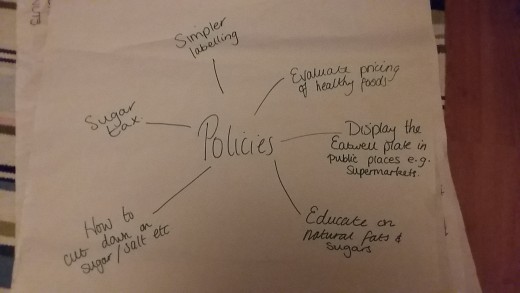 Simpler
labelling
Evaluate pricing
of healthy foods
Sugar
tax
Policies
Display the
Eatwell plate in
public places e.g.
Supermarkets.
How to
cut down on
sugar/salt etc
Educate on
natural fats &
sugars